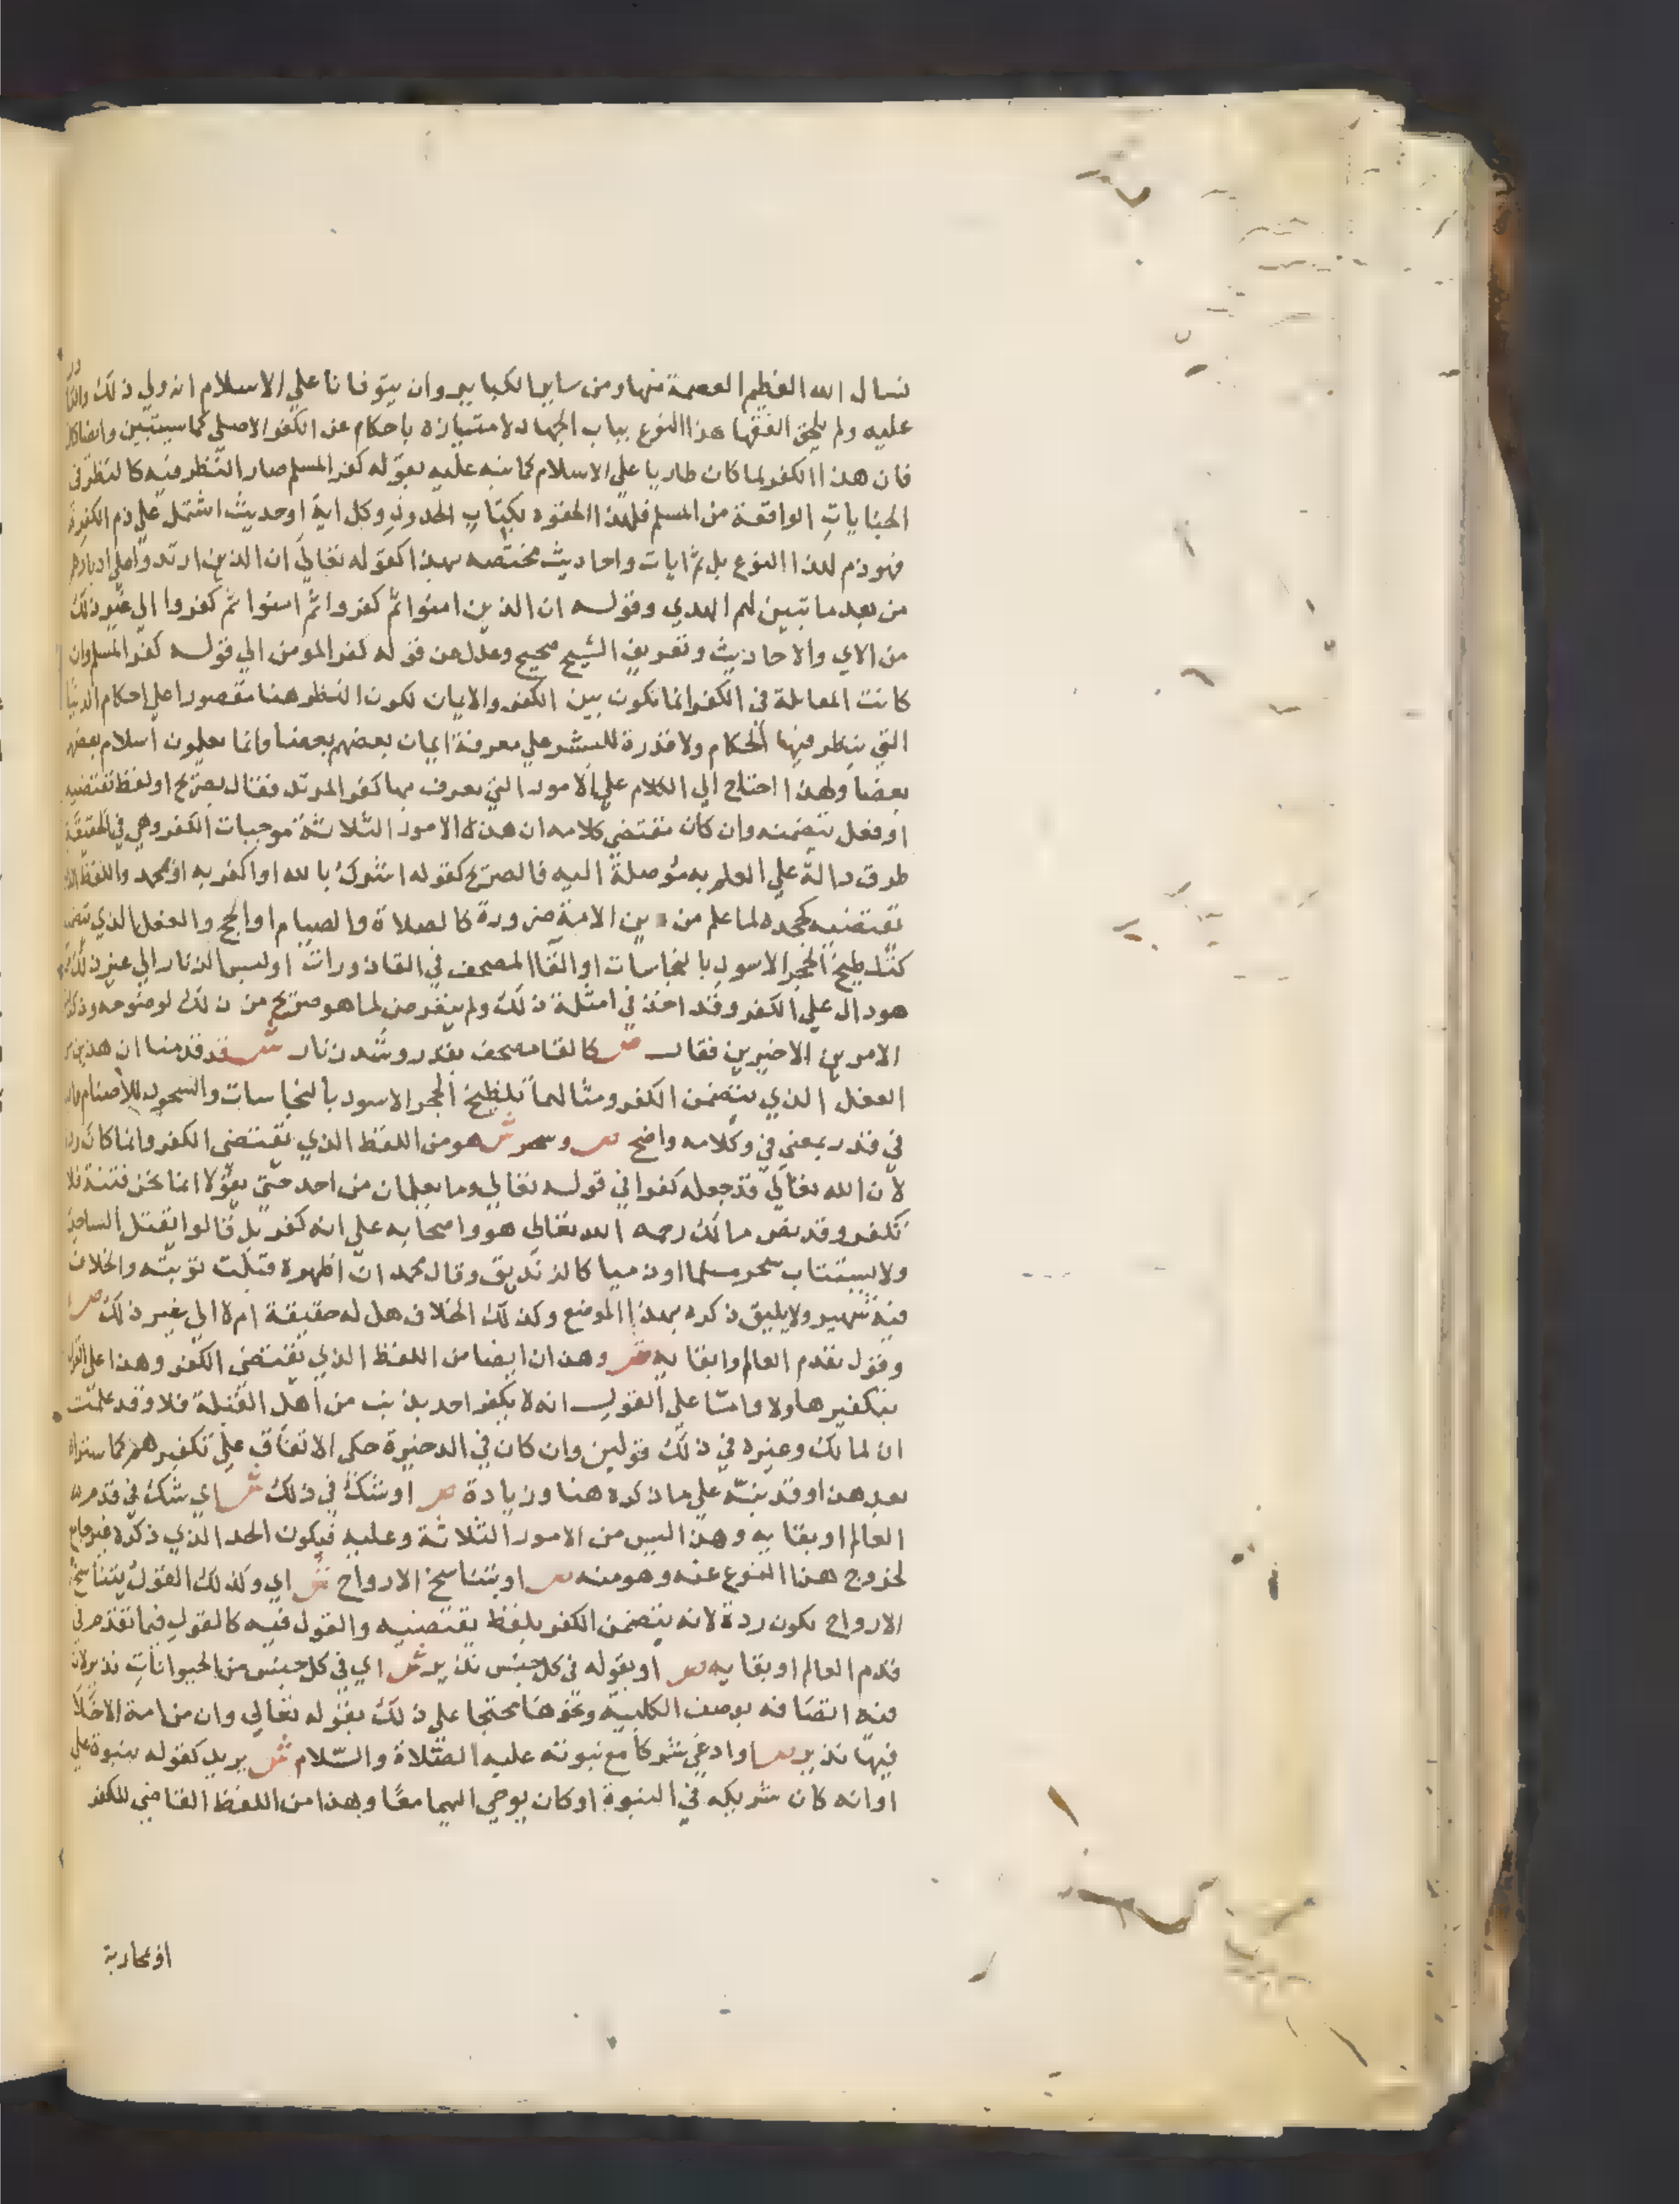 نسال الله العظيم العصمة منها ومن ساير الكباير وان يتوفانا علي الاسلام انه ولي ذلك والقادر
عليه ولم يلحق الفقها هذا النوع بباب الجهاد لامتيازه باحكام عن الكفر الاصلي كما سيتبين وايضا
فان هذا الكفر لما كان طاريا علي الاسلام كما نبه عليه بقوله كفر المسلم صار النظر فيه كالنظر في
الجنايات الواقعة من المسلم فلهذا الحقوه بكتاب الحدود وكل اية او حديث اشتمل علي ذم الكفرة
فهو ذم لهذا النوع بل ثم ايات واحاديث مختصه بهذا كقوله تعالي ان الذين ارتدوا علي ادبارهم
من بعد ما تبين لهم الهدي وقوله ان الذين امنوا ثم كفروا ثم امنوا ثم كفروا الي غير ذلك
من الاي والاحاديث وتعريف الشيخ صحيح وعدل عن قوله كفر المومن الي قوله كفر المسلم وان
كانت المقابلة في الكفر انما تكون بين الكفر والايمان لكون النظر هنا مقصورا علي احكام الدنيا
التي ينظر فيها الحكام ولا قدرة للبشر علي معرفة ايمان بعضهم بعضا وانما يعلمون اسلام بعضهم
بعضا ولهذا احتاج الي الكلام علي الامور التي يعرف بها كفر المرتد فقال بصريح او لفظ يقتضيه
او فعل يتضمنه وان كان مقتضي كلامه ان هذه الامور الثلاثة موجبات الكفر وهي في الحقيقة
طرق دالة علي العلم به موصلة اليه فالصريح كقوله اشرك بالله او اكفر به او بمحمد واللفظ الذي
يقتضيه كجحده لما علم من دين الامة ضرورة كالصلاة والصيام او الحج والفعل الذي يتضمنه
كتلطيخ الحجر الاسود بالنجاسات او القا المصحف في القاذورات او لبس الزنار الي غير ذلك
هو دال علي الكفر وقد اخذ في امثلة ذلك ولم يتعرض لما هو صريح من ذلك لوضوحه وذكر
الامرين الاخيرين فقال ص كالقا مصحف بقذر وشد زنار ش قد قدمنا ان هذين من
الفعل الذي يتضمن الكفر ومثالهما تلطيخ الحجر الاسود بالنجاسات والسجود للاصنام
في قذر بمعني في وكلامه واضح ص وسحر ش هو من اللفظ الذي يقتضي الكفر وانما كان ردة
لان الله تعالي قد جعله كفرا في قوله تعالي وما يعلمان من احد حتي يقولا انما نحن فتنة فلا
تكفر وقد نص مالك رحمه الله تعالي هو واصحابه علي انه كفر بل قالوا يقتل الساحر
ولا يستتاب سحر مسلما او ذميا كالزنديق وقال محمد ان اظهره قبلت توبته والخلاف
فيه شهير ولا يليق ذكره بهذا الموضع وكذلك الخلاف هل له حقيقة ام لا الي غير ذلك ص
وقول بقدم العالم وابقايه ش وهذان ايضا من اللفظ الذي يقتضي الكفر وهذا علي القول
بتكفير هاولا واما علي القول انه لا يكفر احد بذنب من اهل القبلة فلا وقد علمت
ان لمالك وغيره في ذلك قولين وان كان في الدخيرة حكي الاتفاق علي تكفيرهم كما ستراه
بعد هذا وقد ينبه علي ما ذكره هنا وزيادة ص او شك في ذلك ش اي شك في قدم
العالم او بقايه وهذا ليس من الامور الثلاثة وعليه فيكون الحد الذي ذكره غير جامع
لخروج هذا النوع عنه وهو منه ص او بتناسخ الارواح ش اي وكذلك القول بتناسخ
الارواح يكون ردة لانه يتضمن الكفر بلفظ يقتضيه والقول فيه كالقول فيما تقدم في
قدم العالم او بقايه ص او بقوله في كل جنس نذير ش اي في كل جنس من الحيوانات نذير لان
فيه اتصافه بوصف الكلبية ونحوها محتجا علي ذلك بقوله تعالي وان من امة الا خلا
فيها نذير ص او ادعي شركا مع نبوته عليه الصلاة والسلام ش يريد كقوله بنبوة علي
او انه كان شريكه في النبوة او كان يوحي اليهما معا وهذا من اللفظ القاضي للكفر
او بمحاربة